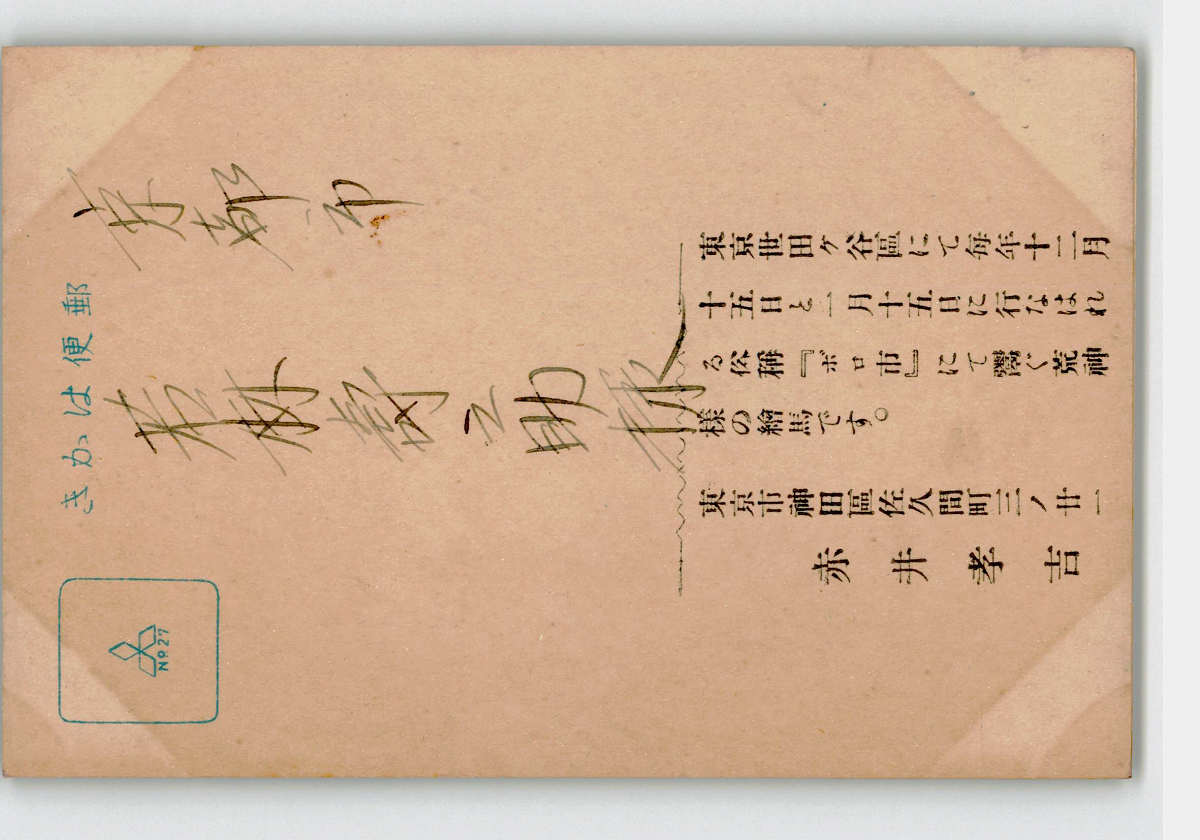 郵便はかき
Nº 27
京都市
若林壽之助様
東京世田ヶ谷區にて毎年十二月
十五日と一月十五日に行なはれ
る俗稱『ボロ市』にて鬻ぐ荒神
様の繪馬です。
東京市神田區佐久間町三ノ廿一
赤井孝吉